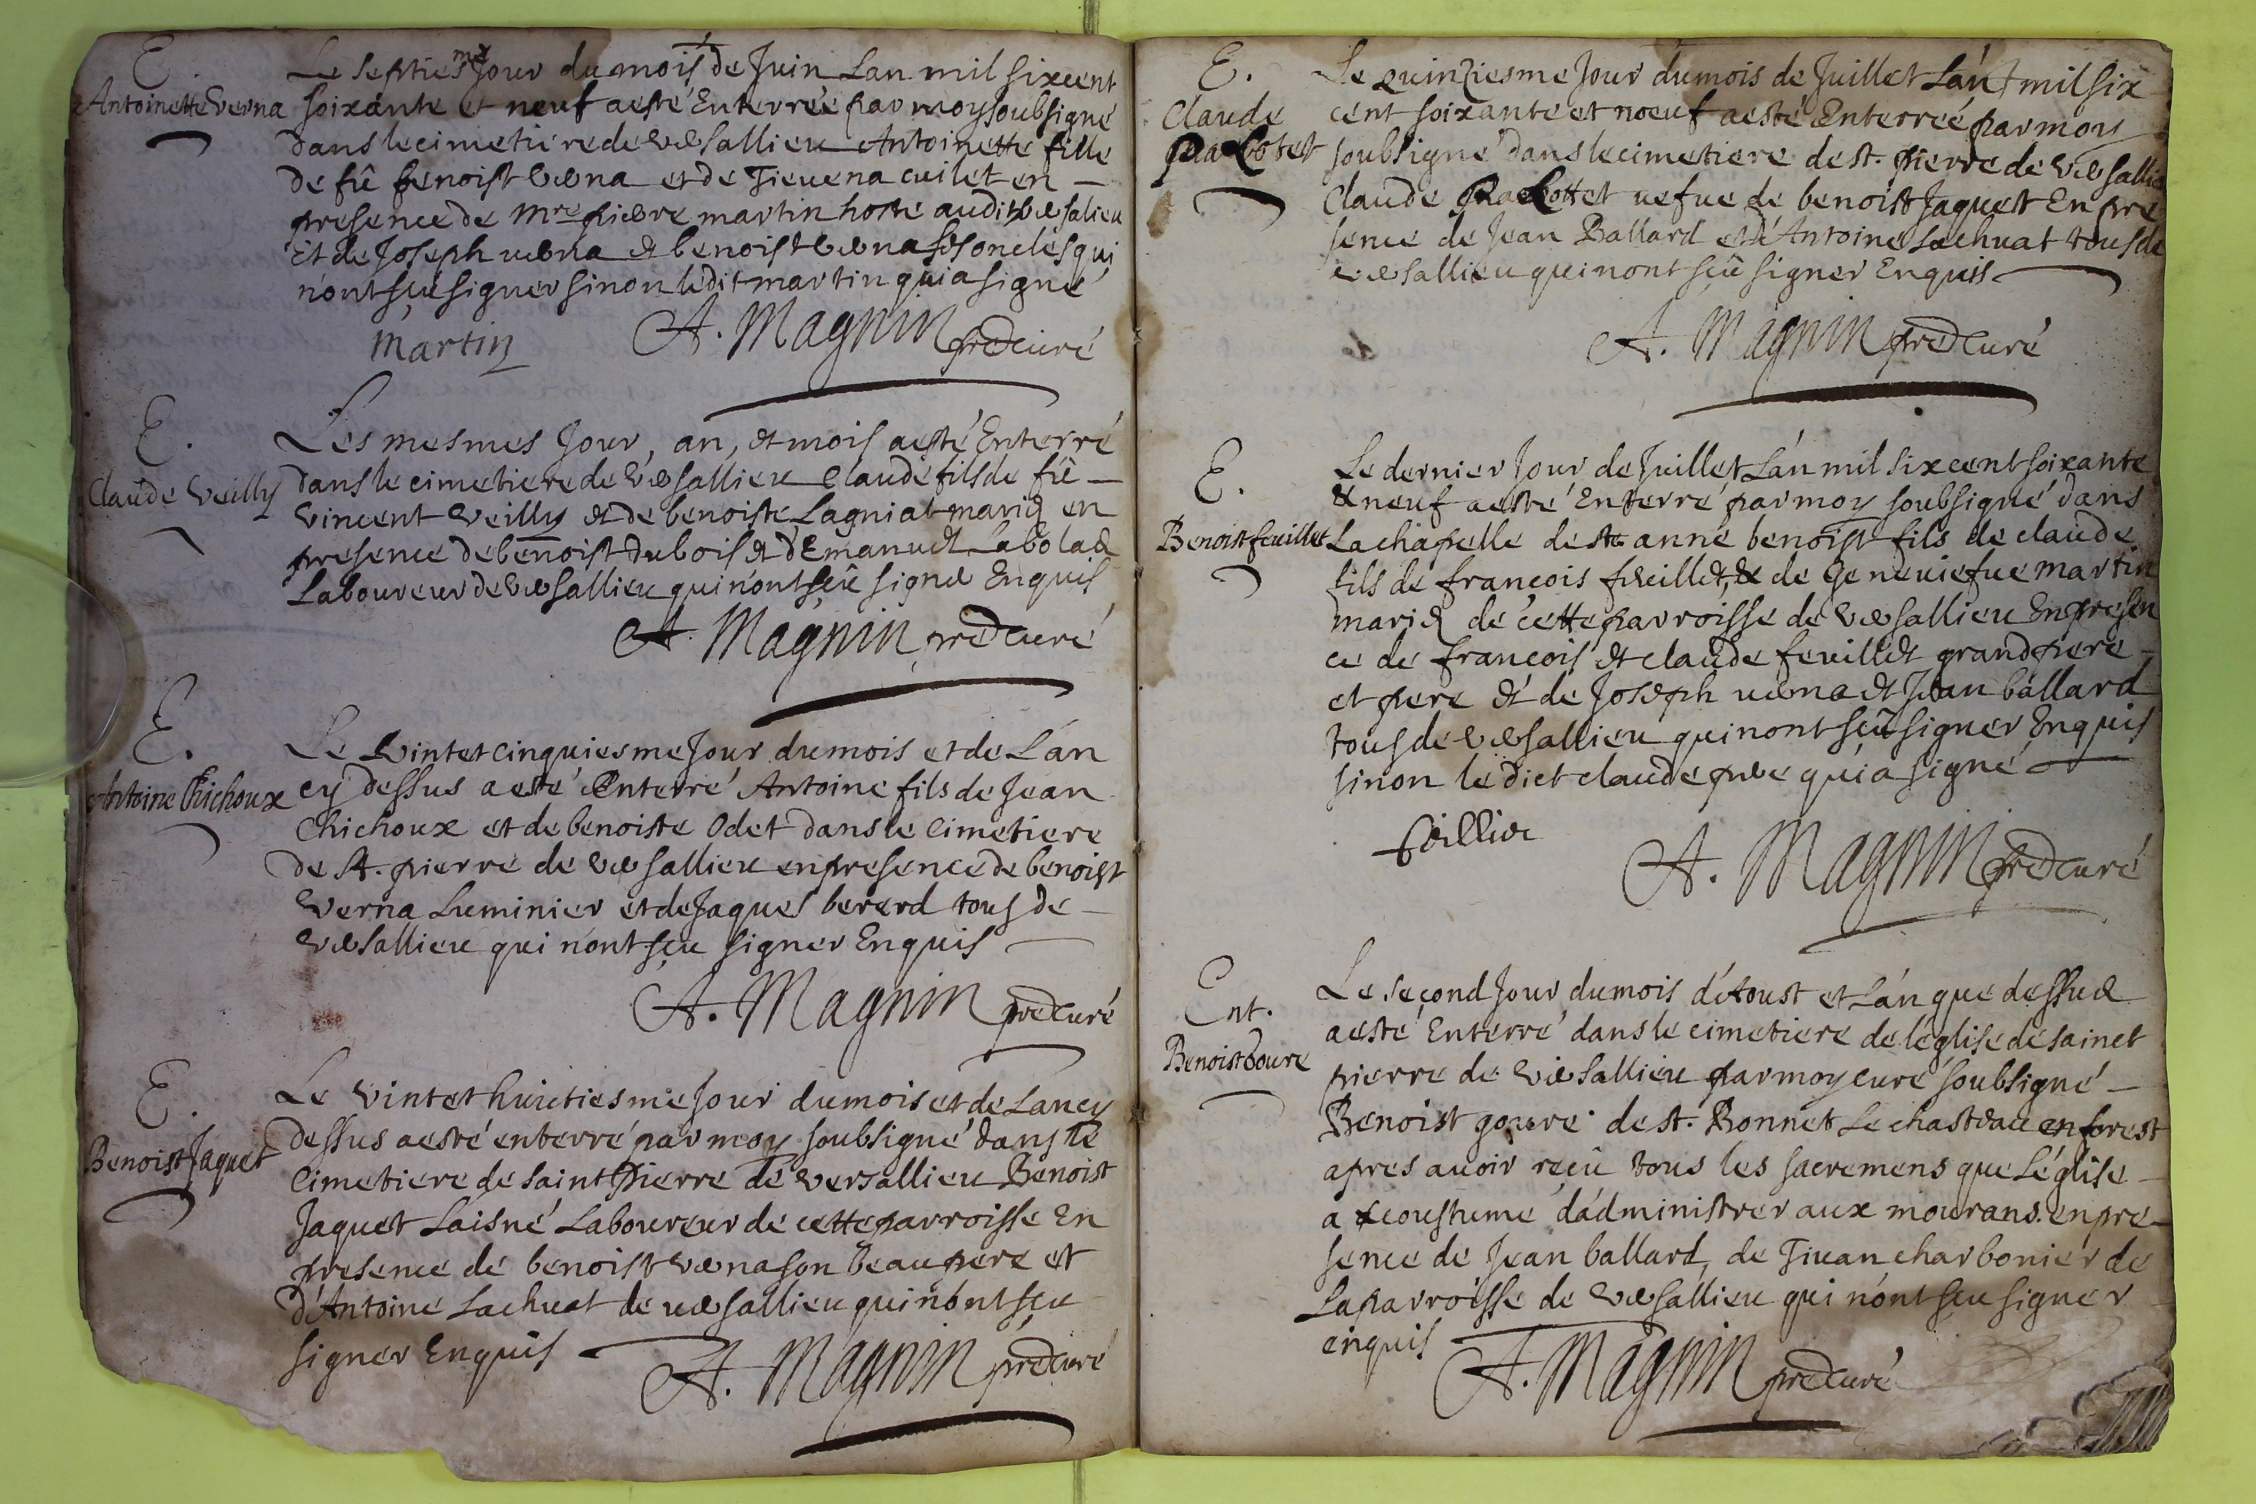 E.
Antoinette Verna
Le septiesme Jour du mois de Juin Lan mil sixcent
soixante et neuf a esté Enterrée par moy soubsigné
dans le cimetiere de Versallieu Antoinette fille
de fû benoist verna et de Tievena cuilet en
presence de Mre pierre martin hoste audit Versalieu
Et de Joseph verna et benoist verna ses oncles qui
n'ont sçu signer sinon ledit martin qui a signé
Martin A. Magnin pred curé
E.
Claude Veilly
Les mesmes Jour, an, et mois a esté Enterré
dans le cimetiere de Versallieu Claude fils de fû
vincent Veilly et de benoiste Lagniat mariez en
presence de bennoist dubois et d'Emanuel
Laboureur de Versallieu qui n'ont sçû signer Enquis
A. Magnin pred curé
E.
Antoine Chichoux
Le vint et cinquiesme Jour du mois et de L'an
cy dessus a esté Enterré Antoine fils de Jean
Chichoux et de benoiste Odet dans le Cimetiere
de St. pierre de Versallieu en presence de benoist
Verna Luminier et de Jaques bererd tous de
Versallieu qui n'ont sçu signer Enquis
A. Magnin pred Curé
E.
Benoist Jaquet
Le vint et huictiesme Jour du mois et de Lancy
dessus a esté enterré par moy soubsigné dans le
Cimetiere de saint Pierre de Versallieu Benoist
Jaquet Laisné Laboureur de cette parroisse En
presence de benoist verna son beaupere et
d'Antoine Lachuat de versallieu qui n'ont sçu
signer Enquis
A. Magnin pred curé
E.
Claude
Le quinziesme Jour du mois de Juillet Lán mil six
cent soixante et noeuf a esté Enterréé par moy
soubsigné dans le cimetiere de st. pierre de Versallie
Claude vefue de benoist Jaquet En pre
sence de Jean Ballard et d'Antoine Lachuat tous de
versallieu qui n'ont sçû signer Enquis
A. Magnin pred Curé
E.
Benoist feuillet
Le dernier Jour de Juillet Lán mil six cent soixante
& neuf a esté Enterré par moy soubsigné dans
La chapelle de ste anne benoist fils de claude
fils de françois feuillet, & de Geneviefue martin
mariez de cette parroisse de Versallieu En presen
ce de françois et claude feuillet grandpere
et pere et de Joseph verna et Jean ballard
tous de Versallieu qui n'ont sçû signer Enquis
sinon le dict claude pere qui a signé
A. Magnin pred curé
Ent.
Benoist goure
Le second Jour du mois d'Aoust et Lán que dessus
a esté Enterré dans le cimetiere de léglise de sainct
pierre de Versallieu par moy curé soubsigné
Benoist goure de st. Bonnet Le chasteau en forest
apres avoir reçû tous les sacremens que L'église
a acoustumé d'administrer aux mourans en pre
sence de Jean ballard, de Tivan charbonier de
La parroisse de Versallieu qui n'ont sçu signer
enquis
A. Magnin pred Curé